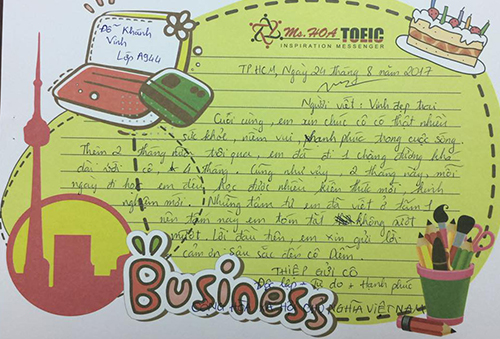 Đỗ Khánh
Vinh
Lớp A944
Ms.HOA TOEIC
INSPIRATION MESSENGER
TPHCM, Ngày 24 tháng 8 năm 2017
Người viết: Vinh đẹp trai
Cuối cùng, em xin chúc cô có thật nhiều
sức khỏe, niềm vui, hạnh phúc trong cuộc sống.
Thêm 2 tháng nữa trôi qua, em đã đi 1 chặng đường khá
dài với cô, 4 tháng. Cũng như vậy, 2 tháng này, mỗi
ngày đi học em đều học được nhiều kiến thức mới, kinh
nghiệm mới. Những tâm tư em đã viết ở tấm 1
nên tấm này em tóm tắt không viết
Lời đầu tiên, em xin gửi lời
cảm ơn sâu sắc đến cô Diễm.
THIỆP GỬI CÔ
Độc lập + Tự do + Hạnh phúc
CỘNG HÒA XÃ HỘI CHỦ NGHĨA VIỆT NAM
Business